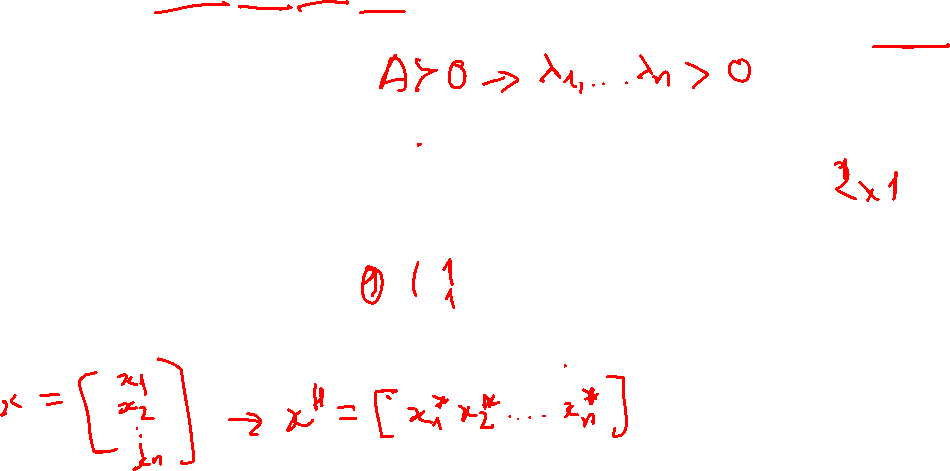 A ≻ 0 → λ₁, ... λₙ > 0
2 x 1
x = [x₁ x₂ ⋮ xₙ] → xᴴ = [x₁* x₂* .... xₙ*]